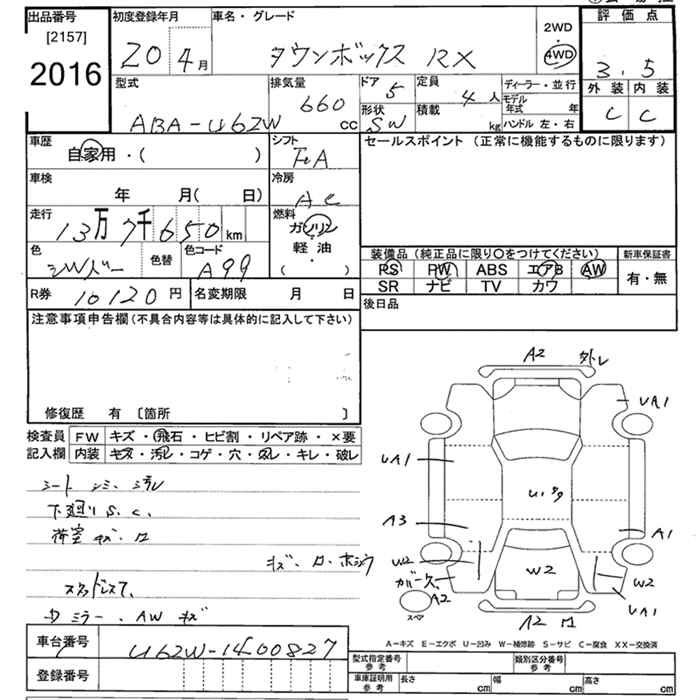 出品番号
[2157]
2016
初度登録年月
20年4月
車名・グレード
タウンボックス RX
2WD
4WD
評価点
3.5
外装 内装
C C
型式
ABA-U62W
排気量
660 cc
ドア 5
形状 SW
定員 4人
積載 kg
ディーラー・並行
モデル年式 年
ハンドル 左・右
車歴
自家用・( )
シフト
FA
セールスポイント (正常に機能するものに限ります)
車検
年 月( 日)
冷房
AC
走行
13万7千650km
燃料
ガソリン
軽油
( )
色
シルバー
色替
色コード
A99
装備品(純正品に限り○をつけてください)
新車保証書
PS PW ABS エアB AW
有・無
SR ナビ TV カワ
R券 10120円
名変期限 月 日
後日品
注意事項申告欄(不具合内容等は具体的に記入して下さい)
修復歴 有 〔箇所 〕
検査員
記入欄
FW キズ・飛石・ヒビ割・リペア跡・×要
内装 キズ・汚レ・コゲ・穴・スレ・キレ・破レ
シート シミ、汚レ
下廻り S.C.
荷室 キズ・凹
スタッドレス
キズ
A2 外レ
UA1
UA1
A3
U1
A1
W2
W2
W2
A2
UA1
スペア
A2 凹
A-キズ E-エクボ U-凹み W-補修跡 S-サビ C-腐食 XX-交換済
車台番号
U62W-1400827
登録番号
型式指定番号 参考
類別区分番号 参考
車庫証明用 参考
長さ cm 幅 cm 高さ cm